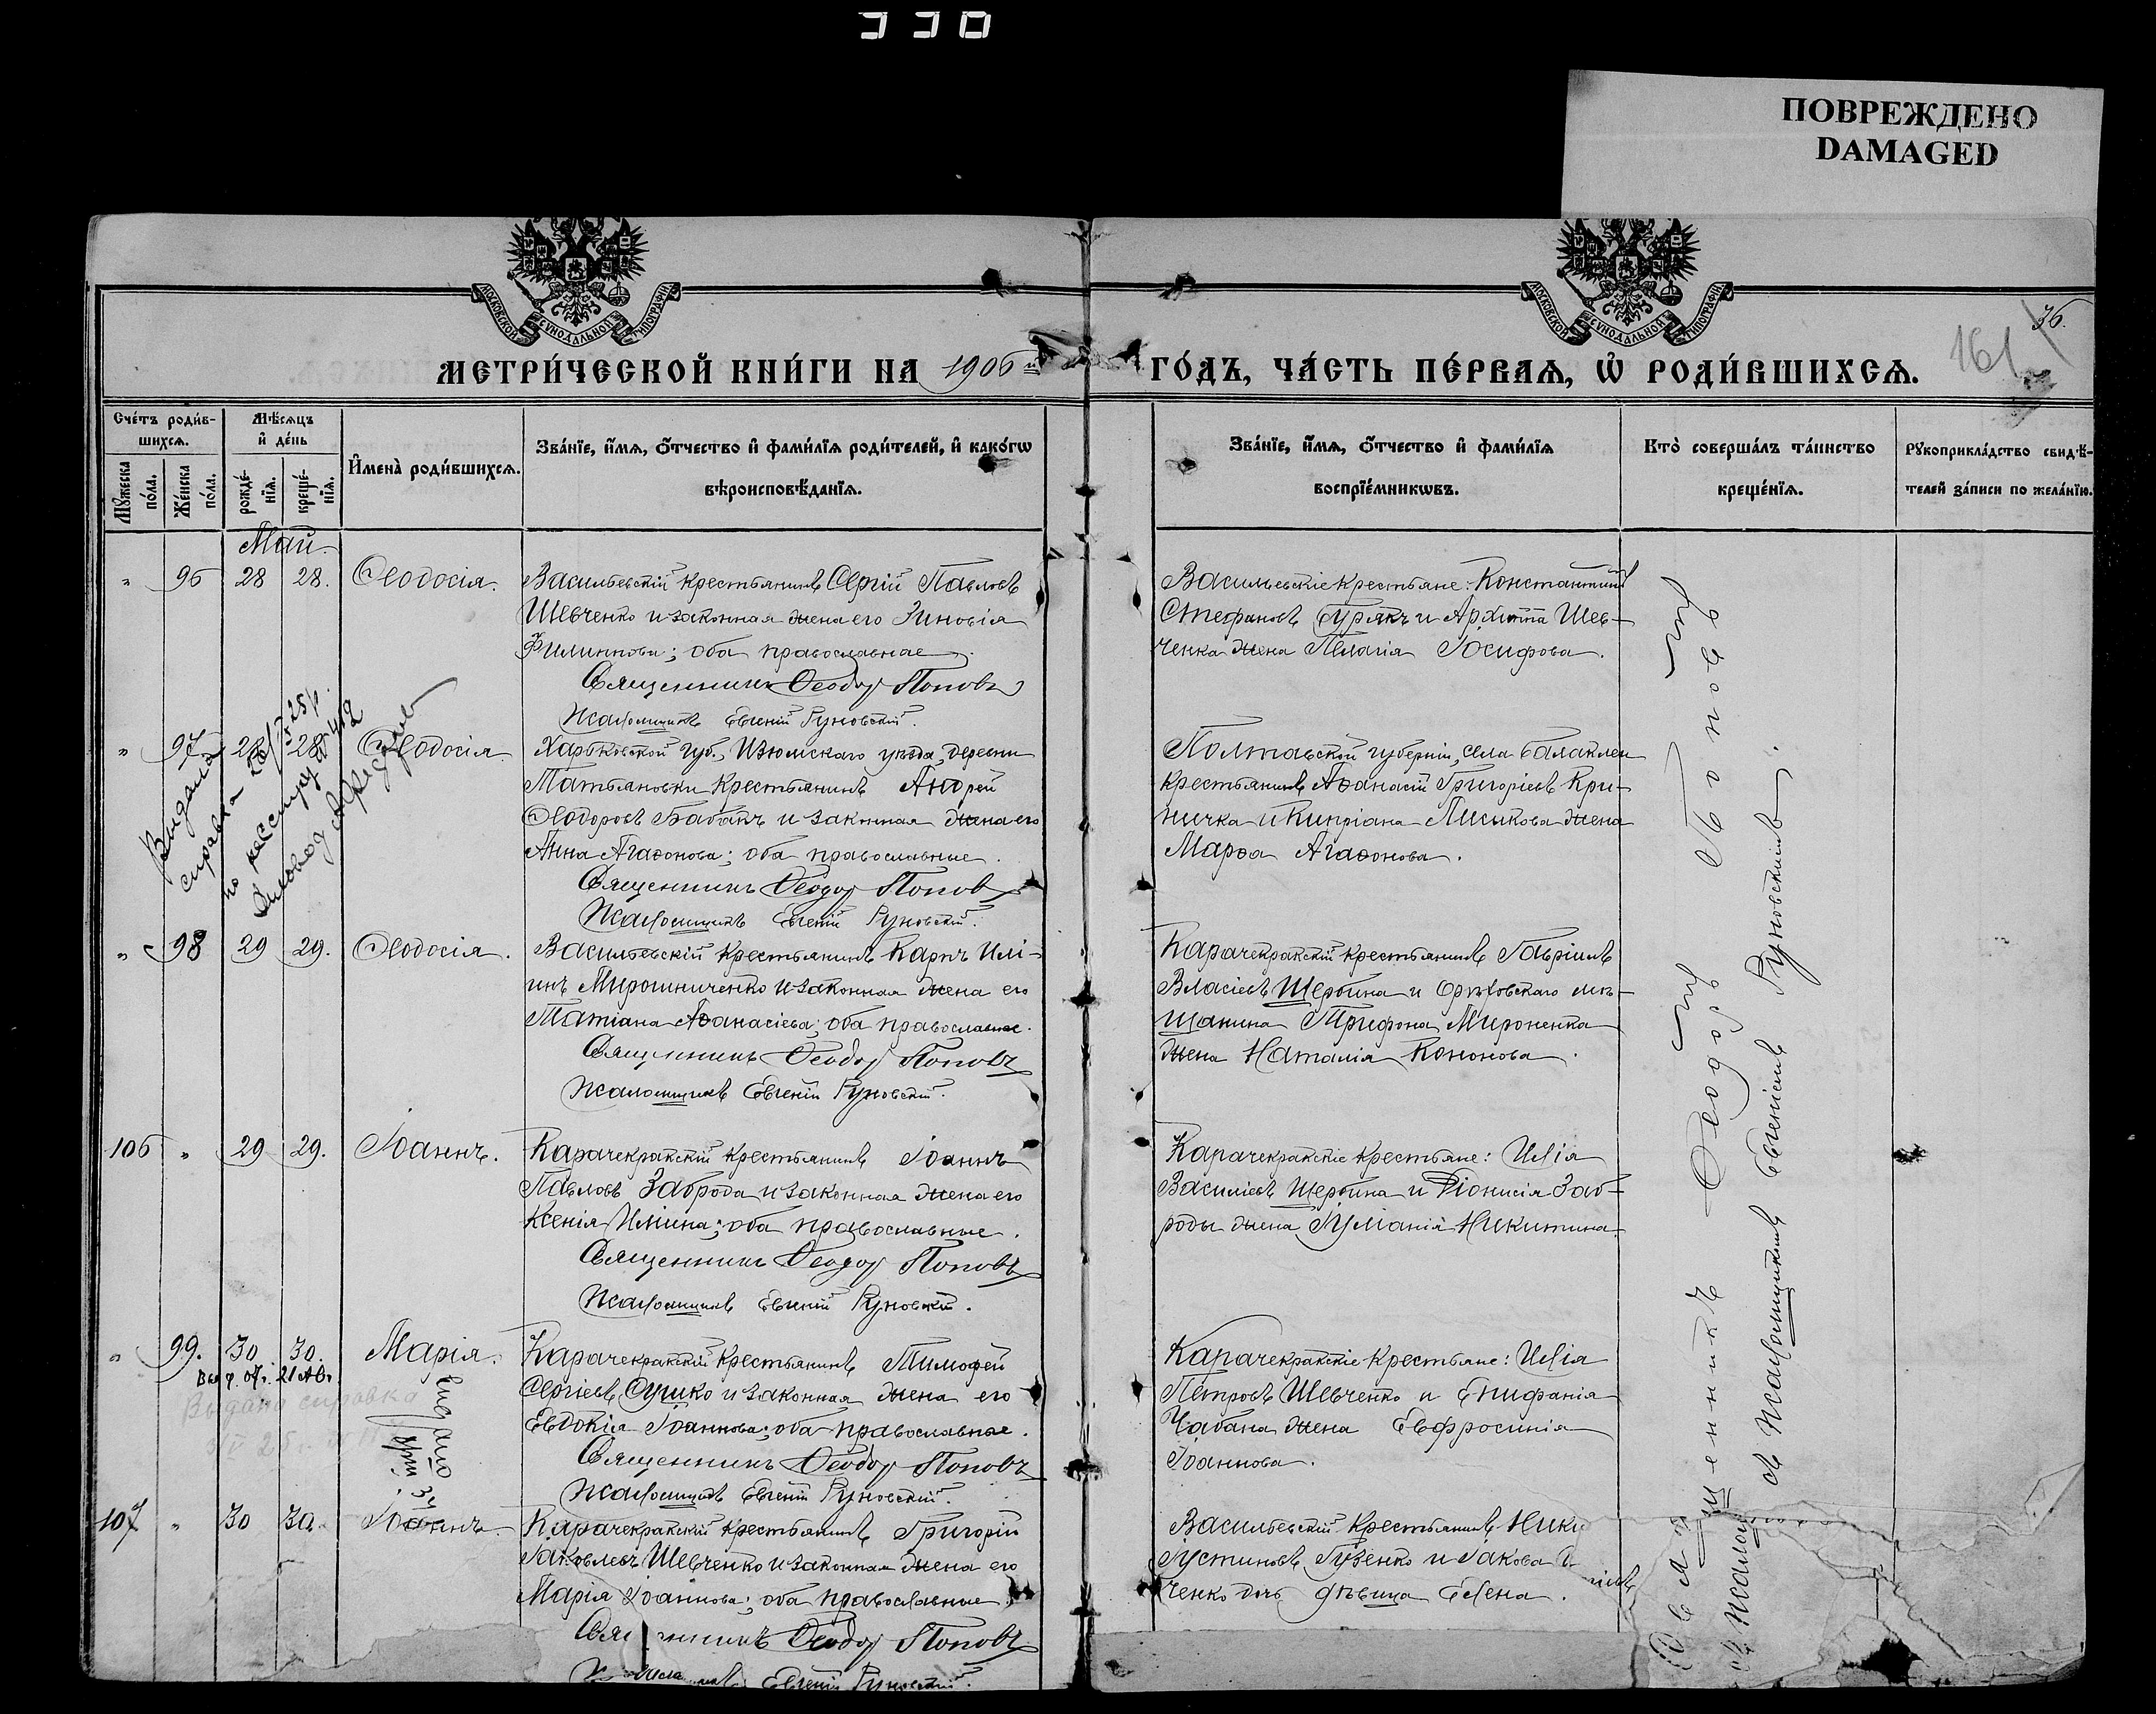 330
ПОВРЕЖДЕНО
DAMAGED
МОСКОВСКОЙ СѴНОДАЛЬНОЙ ТИПОГРАФІИ
МОСКОВСКОЙ СѴНОДАЛЬНОЙ ТИПОГРАФІИ
36.
161
МЕТРИ́ЧЕСКОЙ КНИ́ГИ НА 1906 й ГО́ДЪ, ЧА́СТЬ ПЕ́РВАѦ, Ѡ РОДИ́ВШИХСѦ.
Сче́тъ роди́вшихсѧ.
Мꙋжеска по́ла.
Же́нска по́ла.
Мѣ́сѧцъ и҆ де́нь
рожде́нїѧ.
креще́нїѧ.
И҆мена̀ роди́вшихсѧ.
Зва́нїе, и҆́мѧ, ѻ҆́тчество и҆ фами́лїѧ роди́телей, и҆ како́гѡ
вѣроисповѣ́данїѧ.
Зва́нїе, и҆́мѧ, ѻ҆́тчество и҆ фами́лїѧ
воспрїе́мникѡвъ.
Кто̀ соверша́лъ та́инство
креще́нїѧ.
Рꙋкоприкла́дство свидѣ́-
телей за́писи по жела́нїю.
Май.
" 96 28 28. Ѳеодосія.
Васильевскій крестьянинъ Сергій Павловъ
Шевченко и законная жена его Зиновія
Филиппова; оба православные.
Священникъ Ѳеодоръ Поповъ
Псаломщикъ Евгеній Руновскій.
Васильевскіе крестьяне: Константинъ
Стефановъ Бурякъ и Архиппа Шев-
ченка жена Пелагія Іосифова.
" 97 28 28 Ѳеодосія.
Выдана
справка
Харьковской губ., Изюмскаго уѣзда, деревни
Матьяновки крестьянинъ Андрей
Ѳеодоровъ Бабакъ и законная жена его
Анна Агаѳонова; оба православные.
Священникъ Ѳеодоръ Поповъ
Псаломщикъ Евгеній Руновскій.
Полтавской губерніи, села Балаклеи
крестьянинъ Аѳанасій Григоріевъ Кри-
ничка и Кипріана Лисикова жена
Марѳа Агаѳонова.
" 98 29 29. Ѳеодосія.
Васильевскій крестьянинъ Карпъ Илі-
инъ Мирошниченко и законная жена его
Татіана Аѳанасіева; оба православные.
Священникъ Ѳеодоръ Поповъ
Псаломщикъ Евгеній Руновскій.
Карачекракскій крестьянинъ Гавріилъ
Власіевъ Щербина и Орѣховскаго мѣ-
щанина Трифона Мироненка
жена Наталія Кононова.
106 " 29 29. Іоаннъ.
Карачекракскій крестьянинъ Іоаннъ
Павловъ Заброда и законная жена его
Ксенія Иліина; оба православные.
Священникъ Ѳеодоръ Поповъ
Псаломщикъ Евгеній Руновскій.
Карачекракскіе крестьяне: Илія
Василіевъ Щербина и Діонисія Заб-
роды жена Іуліанія Никитина.
" 99. 30 30. Марія.
Выдана справка
выдано
Карачекракскій крестьянинъ Тимофей
Сергіевъ Сушко и законная жена его
Евдокія Іоаннова; оба православные.
Священникъ Ѳеодоръ Поповъ
Псаломщикъ Евгеній Руновскій.
Карачекракскіе крестьяне: Илія
Петровъ Шевченко и Епифанія
Чабана жена Евфросинія
Іоаннова.
107 " 30 30. Іоаннъ.
Карачекракскій крестьянинъ Григорій
Іаковлевъ Шевченко и законная жена его
Марія Іоаннова; оба православные.
Священникъ Ѳеодоръ Поповъ
Евгеній Руновскій.
Васильевскій крестьянинъ Ники
Іустиновъ Гузенко и Іакова
ченко дочь дѣвица Елена.
Священникъ Ѳеодоръ Поповъ
съ Псаломщикомъ Евгеніемъ Руновскимъ.